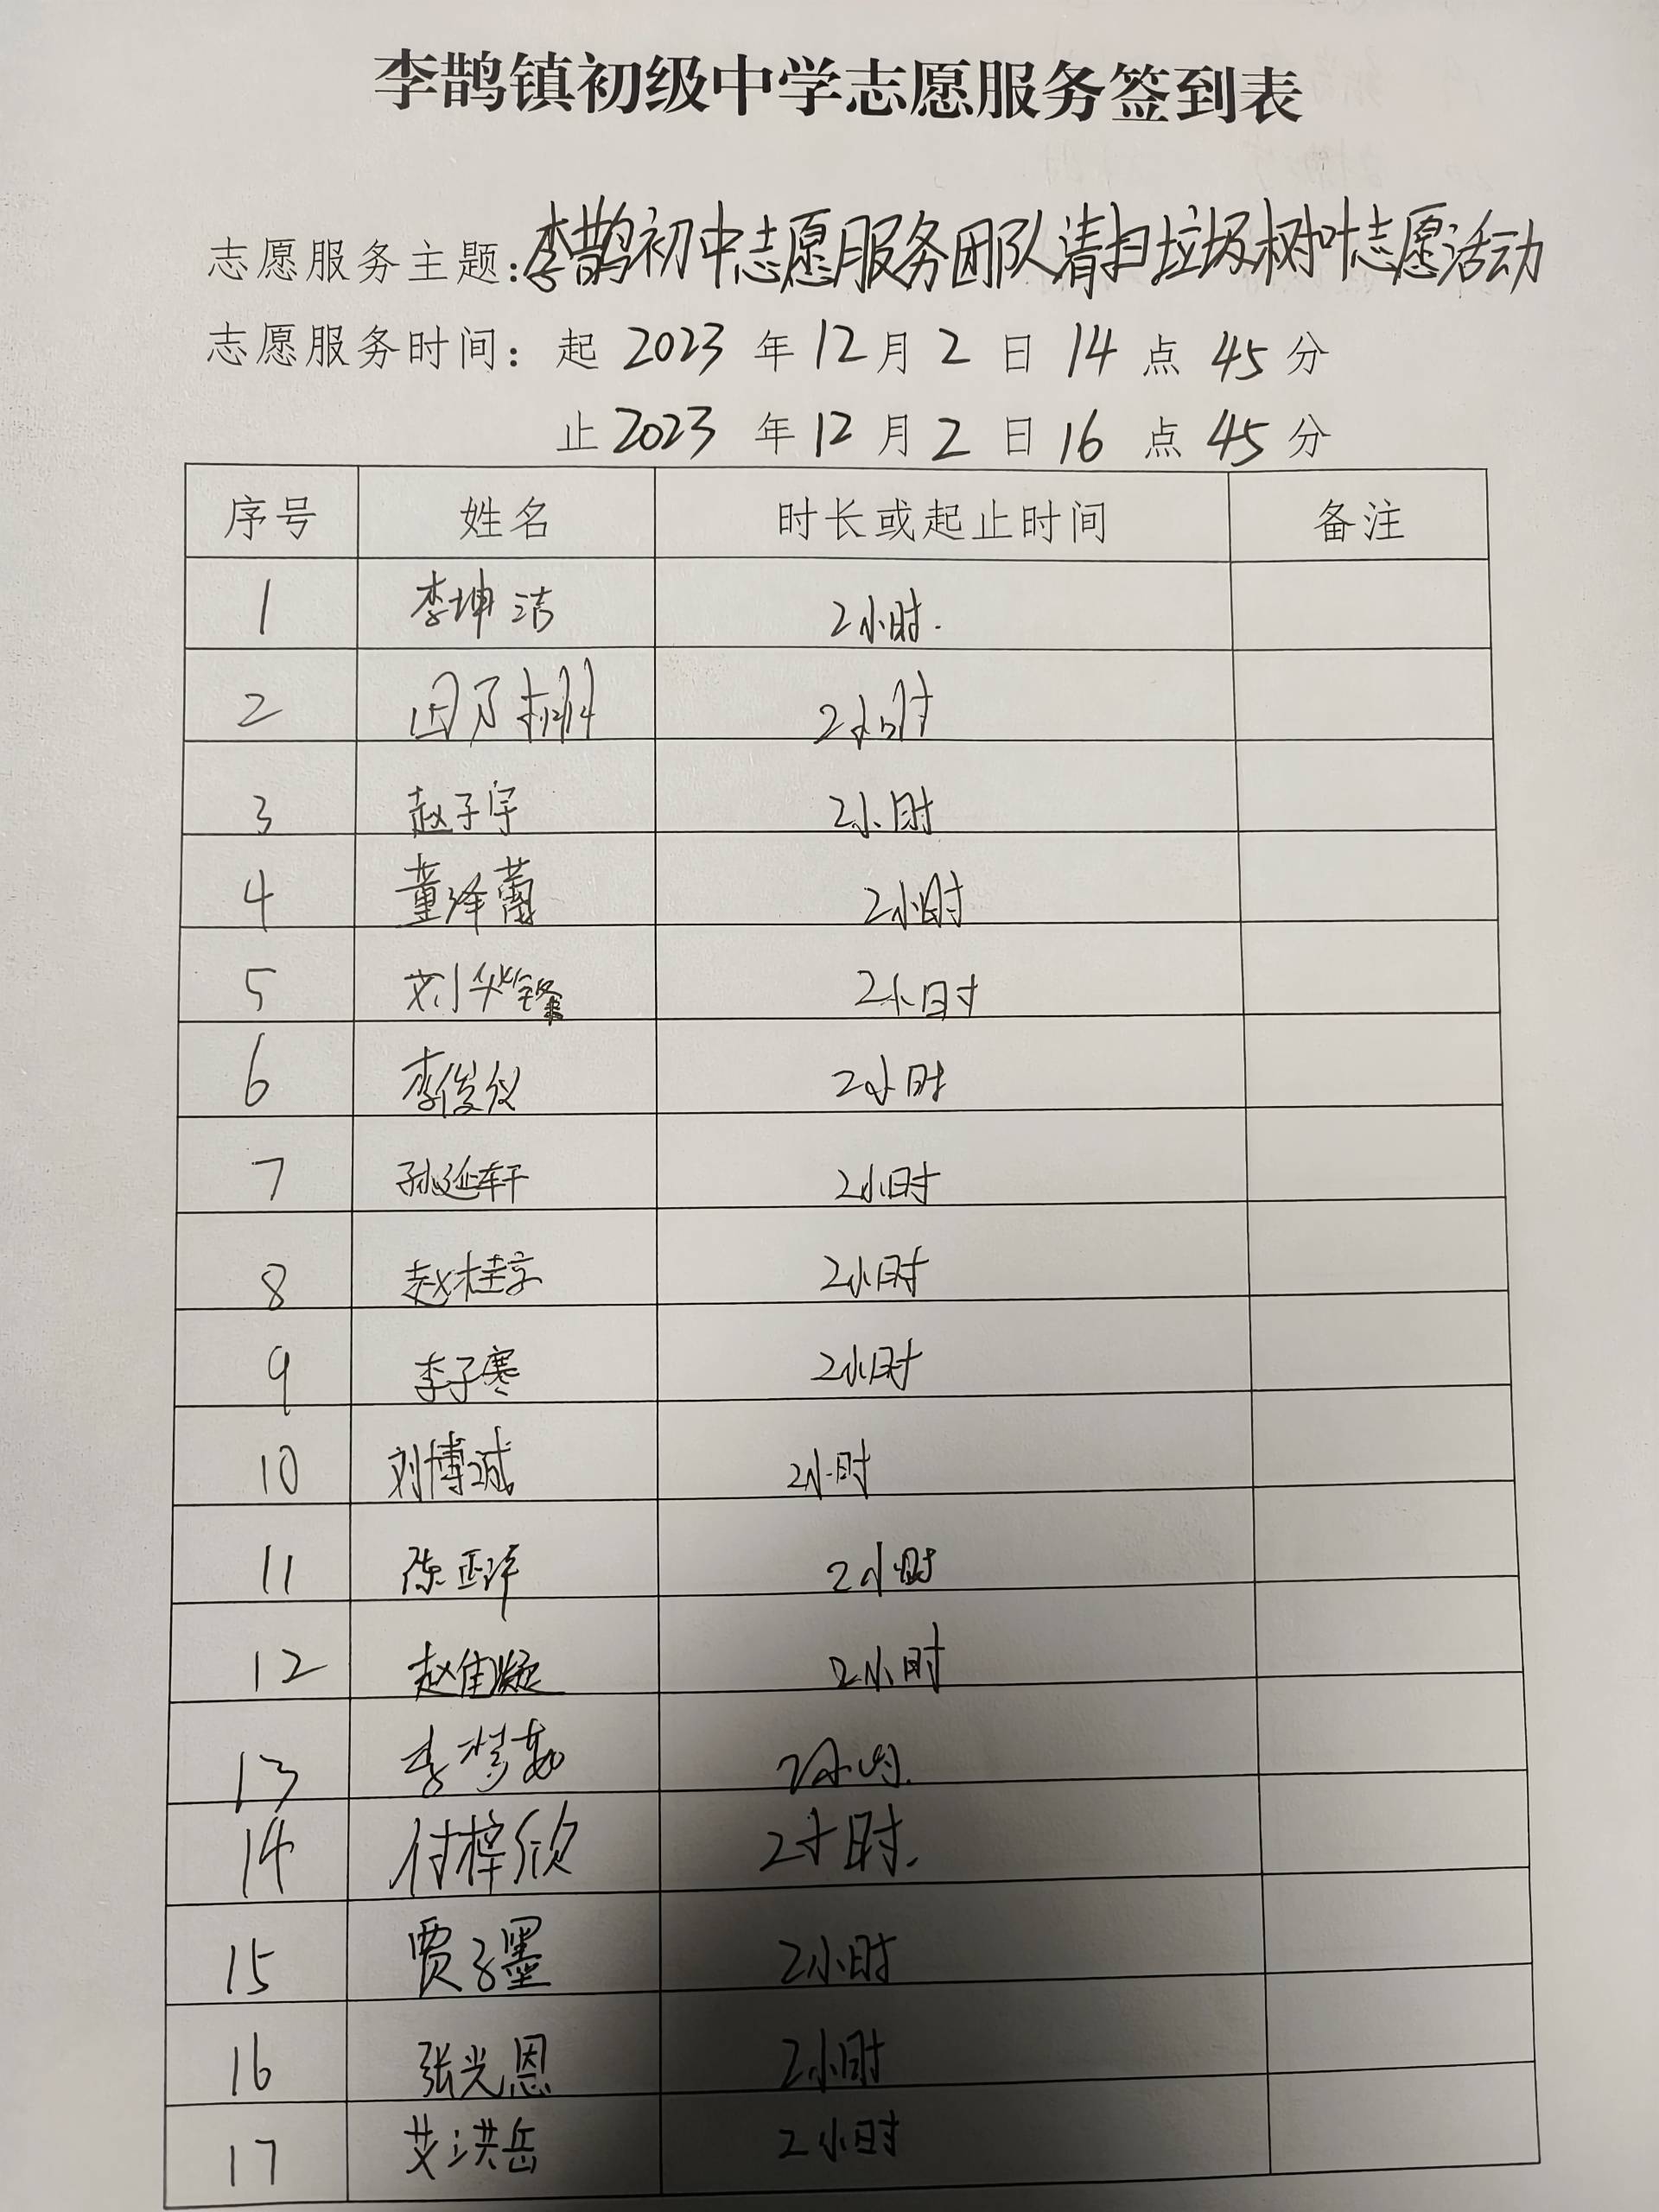 李鹊镇初级中学志愿服务签到表
志愿服务主题：李鹊初中志愿服务团队清扫垃圾树叶志愿活动
志愿服务时间：起 2023 年 12 月 2 日 14 点 45 分
止 2023 年 12 月 2 日 16 点 45 分
序号 姓名 时长或起止时间 备注
1 李坤洁 2小时.
2 2小时
3 赵子宇 2小时
4 董泽菡 2小时
5 刘华锋 2小时
6 李俊仪 2小时
7 孙延轩 2小时
8 赵桂京 2小时
9 李子寒 2小时
10 刘博诚 2小时
11 陈正洋 2小时
12 赵佳凝 2小时
13 李梦茹 2小时.
14 付梓欣 2小时.
15 贾子墨 2小时
16 张光恩 2小时
17 艾洪岳 2小时